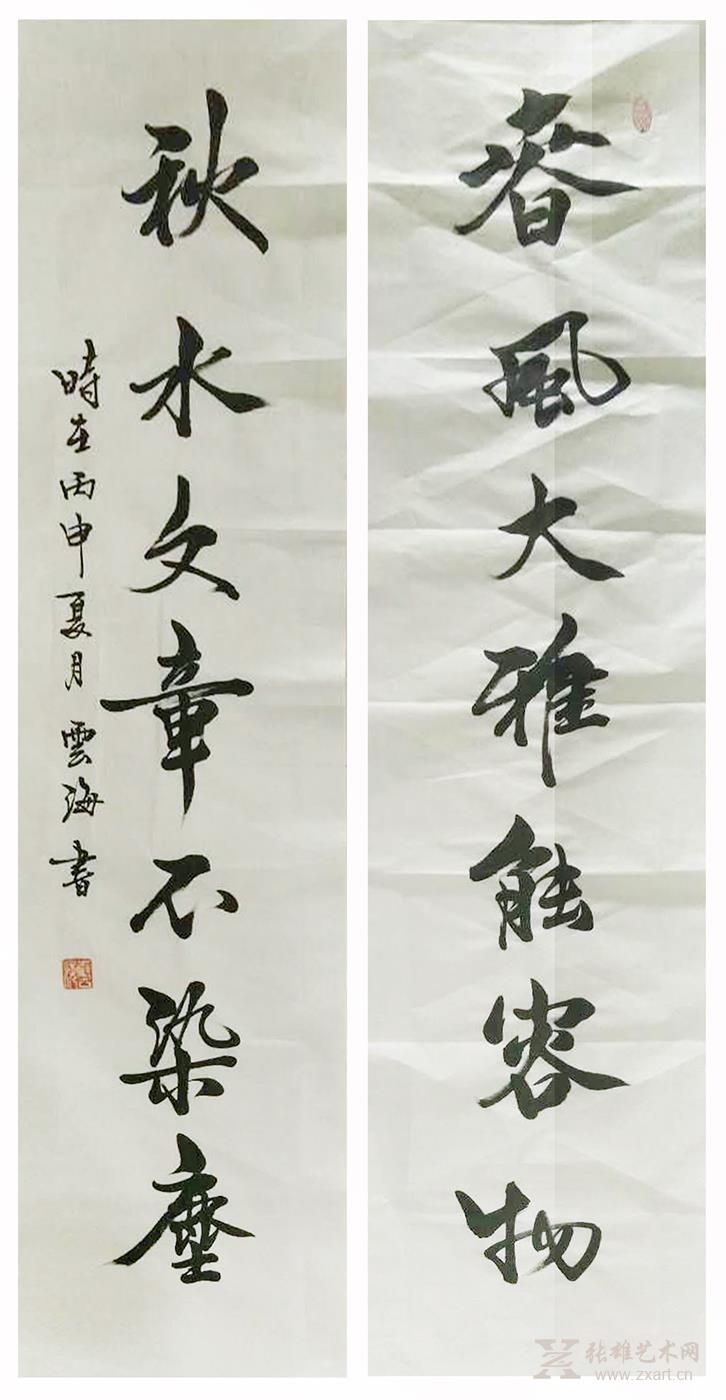 春風大雅能容物
秋水文章不染塵
時在丙申夏月雲海書
张雄艺术网
www.zxart.cn